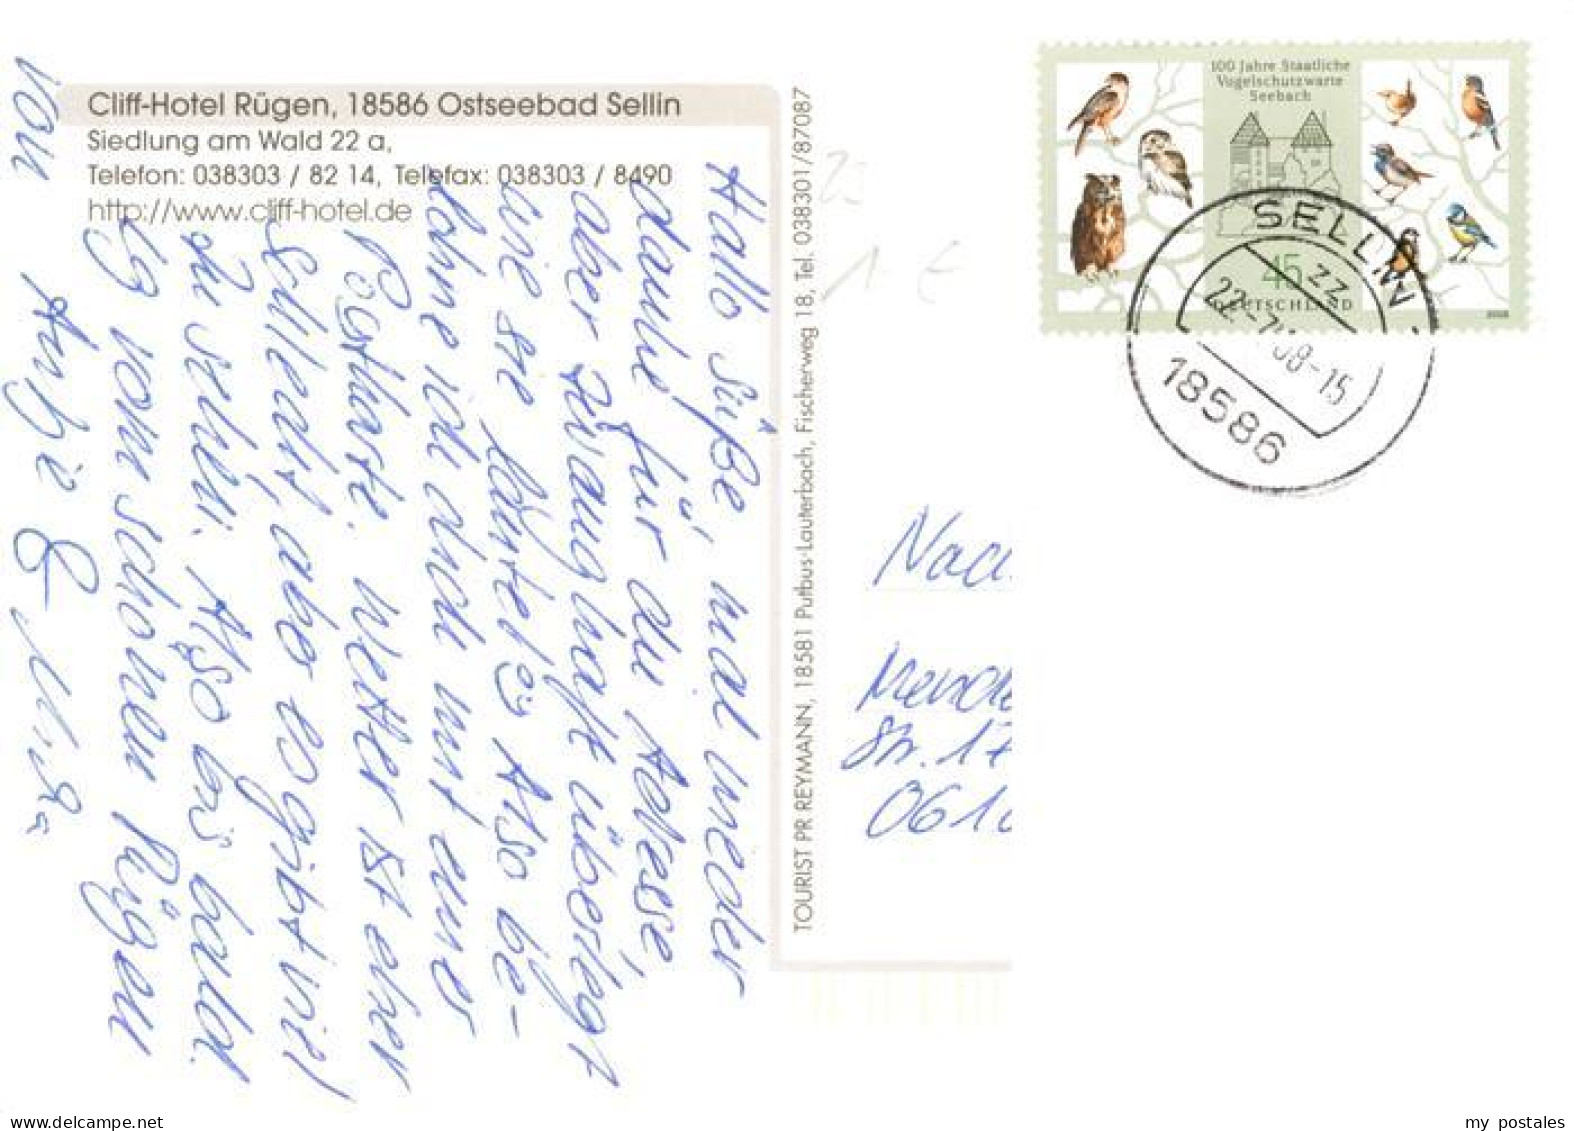 Cliff-Hotel Rügen, 18586 Ostseebad Sellin
Siedlung am Wald 22 a,
Telefon: 038303 / 82 14, Telefax: 038303 / 8490
http://www.cliff-hotel.de
Hallo süße, mal wieder
danke für die Adresse,
aber zwanghaft überlegt
wie sie lautet Also be-
komme ich auch mit eine
Postkarte. Wetter ist eher
schlecht, abo es gibt viel
zu sehn. Also bis bald.
LG vom schönen Rügen
von Antje &
TOURIST PR REYMANN, 18581 Putbus-Lauterbach, Fischerweg 18, Tel. 038301/87087
1 €
100 Jahre Staatliche
Vogelschutzwarte
Seebach
45
DEUTSCHLAND
2008
SELLIN
zz
22.-7.08-15
18586
Str. 17
061
my postales